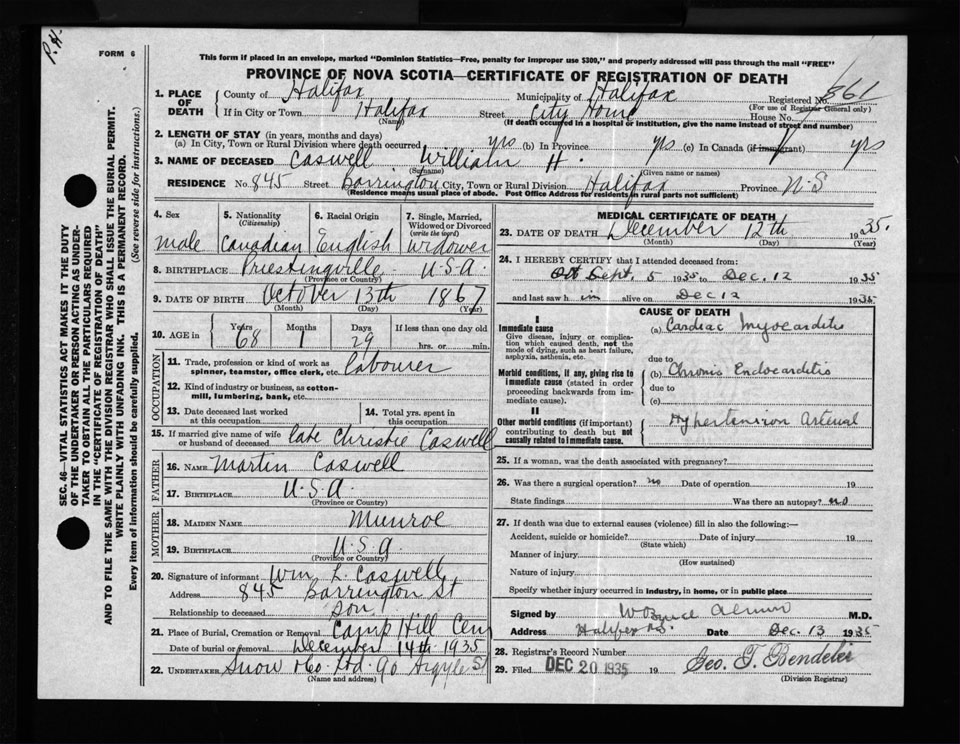 P.H.
FORM 6
This form if placed in an envelope, marked "Dominion Statistics—Free, penalty for improper use $300," and properly addressed will pass through the mail "FREE"
PROVINCE OF NOVA SCOTIA—CERTIFICATE OF REGISTRATION OF DEATH
1. PLACE OF DEATH County of Halifax Municipality of Halifax Registered No. 861
(For use of Registrar General only)
If in City or Town Halifax Street City Home House No.
(Name) (If death occurred in a hospital or institution, give the name instead of street and number)
2. LENGTH OF STAY (in years, months and days)
(a) In City, Town or Rural Division where death occurred yrs (b) In Province yrs (c) In Canada (if immigrant) yrs
3. NAME OF DECEASED Caswell William H.
(Surname) (Given name or names)
RESIDENCE No. 845 Street Barrington City, Town or Rural Division Halifax Province N-S
(Residence means usual place of abode. Post Office Address for residents in rural parts not sufficient)
4. Sex male
5. Nationality (Citizenship) Canadian
6. Racial Origin English
7. Single, Married, Widowed or Divorced (write the word) Widower
8. BIRTHPLACE Priestingville - U-S-A.
(Province or Country)
9. DATE OF BIRTH October 13th 1867
(Month) (Day) (Year)
10. AGE in Years 68 Months 1 Days 29 If less than one day old hrs. or min.
OCCUPATION
11. Trade, profession or kind of work as spinner, teamster, office clerk, etc. labourer
12. Kind of industry or business, as cotton-mill, lumbering, bank, etc.
13. Date deceased last worked at this occupation
14. Total yrs. spent in this occupation
15. If married give name of wife or husband of deceased late Christie Caswell
FATHER
16. NAME Martin Caswell
17. BIRTHPLACE U.S.A.
(Province or Country)
MOTHER
18. MAIDEN NAME Munroe
19. BIRTHPLACE U.S.A.
(Province or Country)
20. Signature of informant Wm L. Caswell
Address 845 Barrington St
Relationship to deceased Son
21. Place of Burial, Cremation or Removal Camp Hill Cem
Date of burial or removal December 14th 1935
22. UNDERTAKER Snow &Co. Ltd. 90 Argyle St
(Name and address)
MEDICAL CERTIFICATE OF DEATH
23. DATE OF DEATH December 12th 1935.
(Month) (Day) (Year)
24. I HEREBY CERTIFY that I attended deceased from:
Sept. 5 1935 to Dec. 12 1935
and last saw him alive on Dec 12 1935
CAUSE OF DEATH
I
Immediate cause
Give disease, injury or complication which caused death, not the mode of dying, such as heart failure, asphyxia, asthenia, etc.
(a) Cardiac Myocarditis
due to
Morbid conditions, if any, giving rise to immediate cause (stated in order proceeding backwards from immediate cause).
(b) Chronic Endocarditis
due to
(c)
II
Other morbid conditions (if important) contributing to death but not causally related to immediate cause.
Hypertension Arterial
25. If a woman, was the death associated with pregnancy?
26. Was there a surgical operation? no Date of operation 19
State findings Was there an autopsy? no
27. If death was due to external causes (violence) fill in also the following:—
Accident, suicide or homicide? Date of injury 19
(State which)
Manner of injury
(How sustained)
Nature of injury
Specify whether injury occurred in industry, in home, or in public place
Signed by W Bruce M.D.
Address Halifax N.S. Date Dec. 13 1935
28. Registrar's Record Number
29. Filed DEC 20 1935 19 Geo. T. Bendeler
(Division Registrar)
SEC. 46—VITAL STATISTICS ACT MAKES IT THE DUTY
OF THE UNDERTAKER OR PERSON ACTING AS UNDER-
TAKER TO OBTAIN ALL THE PARTICULARS REQUIRED
IN THE "CERTIFICATE OF REGISTRATION OF DEATH"
AND TO FILE THE SAME WITH THE DIVISION REGISTRAR WHO SHALL ISSUE THE BURIAL PERMIT.
WRITE PLAINLY WITH UNFADING INK. THIS IS A PERMANENT RECORD.
Every item of information should be carefully supplied. (See reverse side for instructions.)